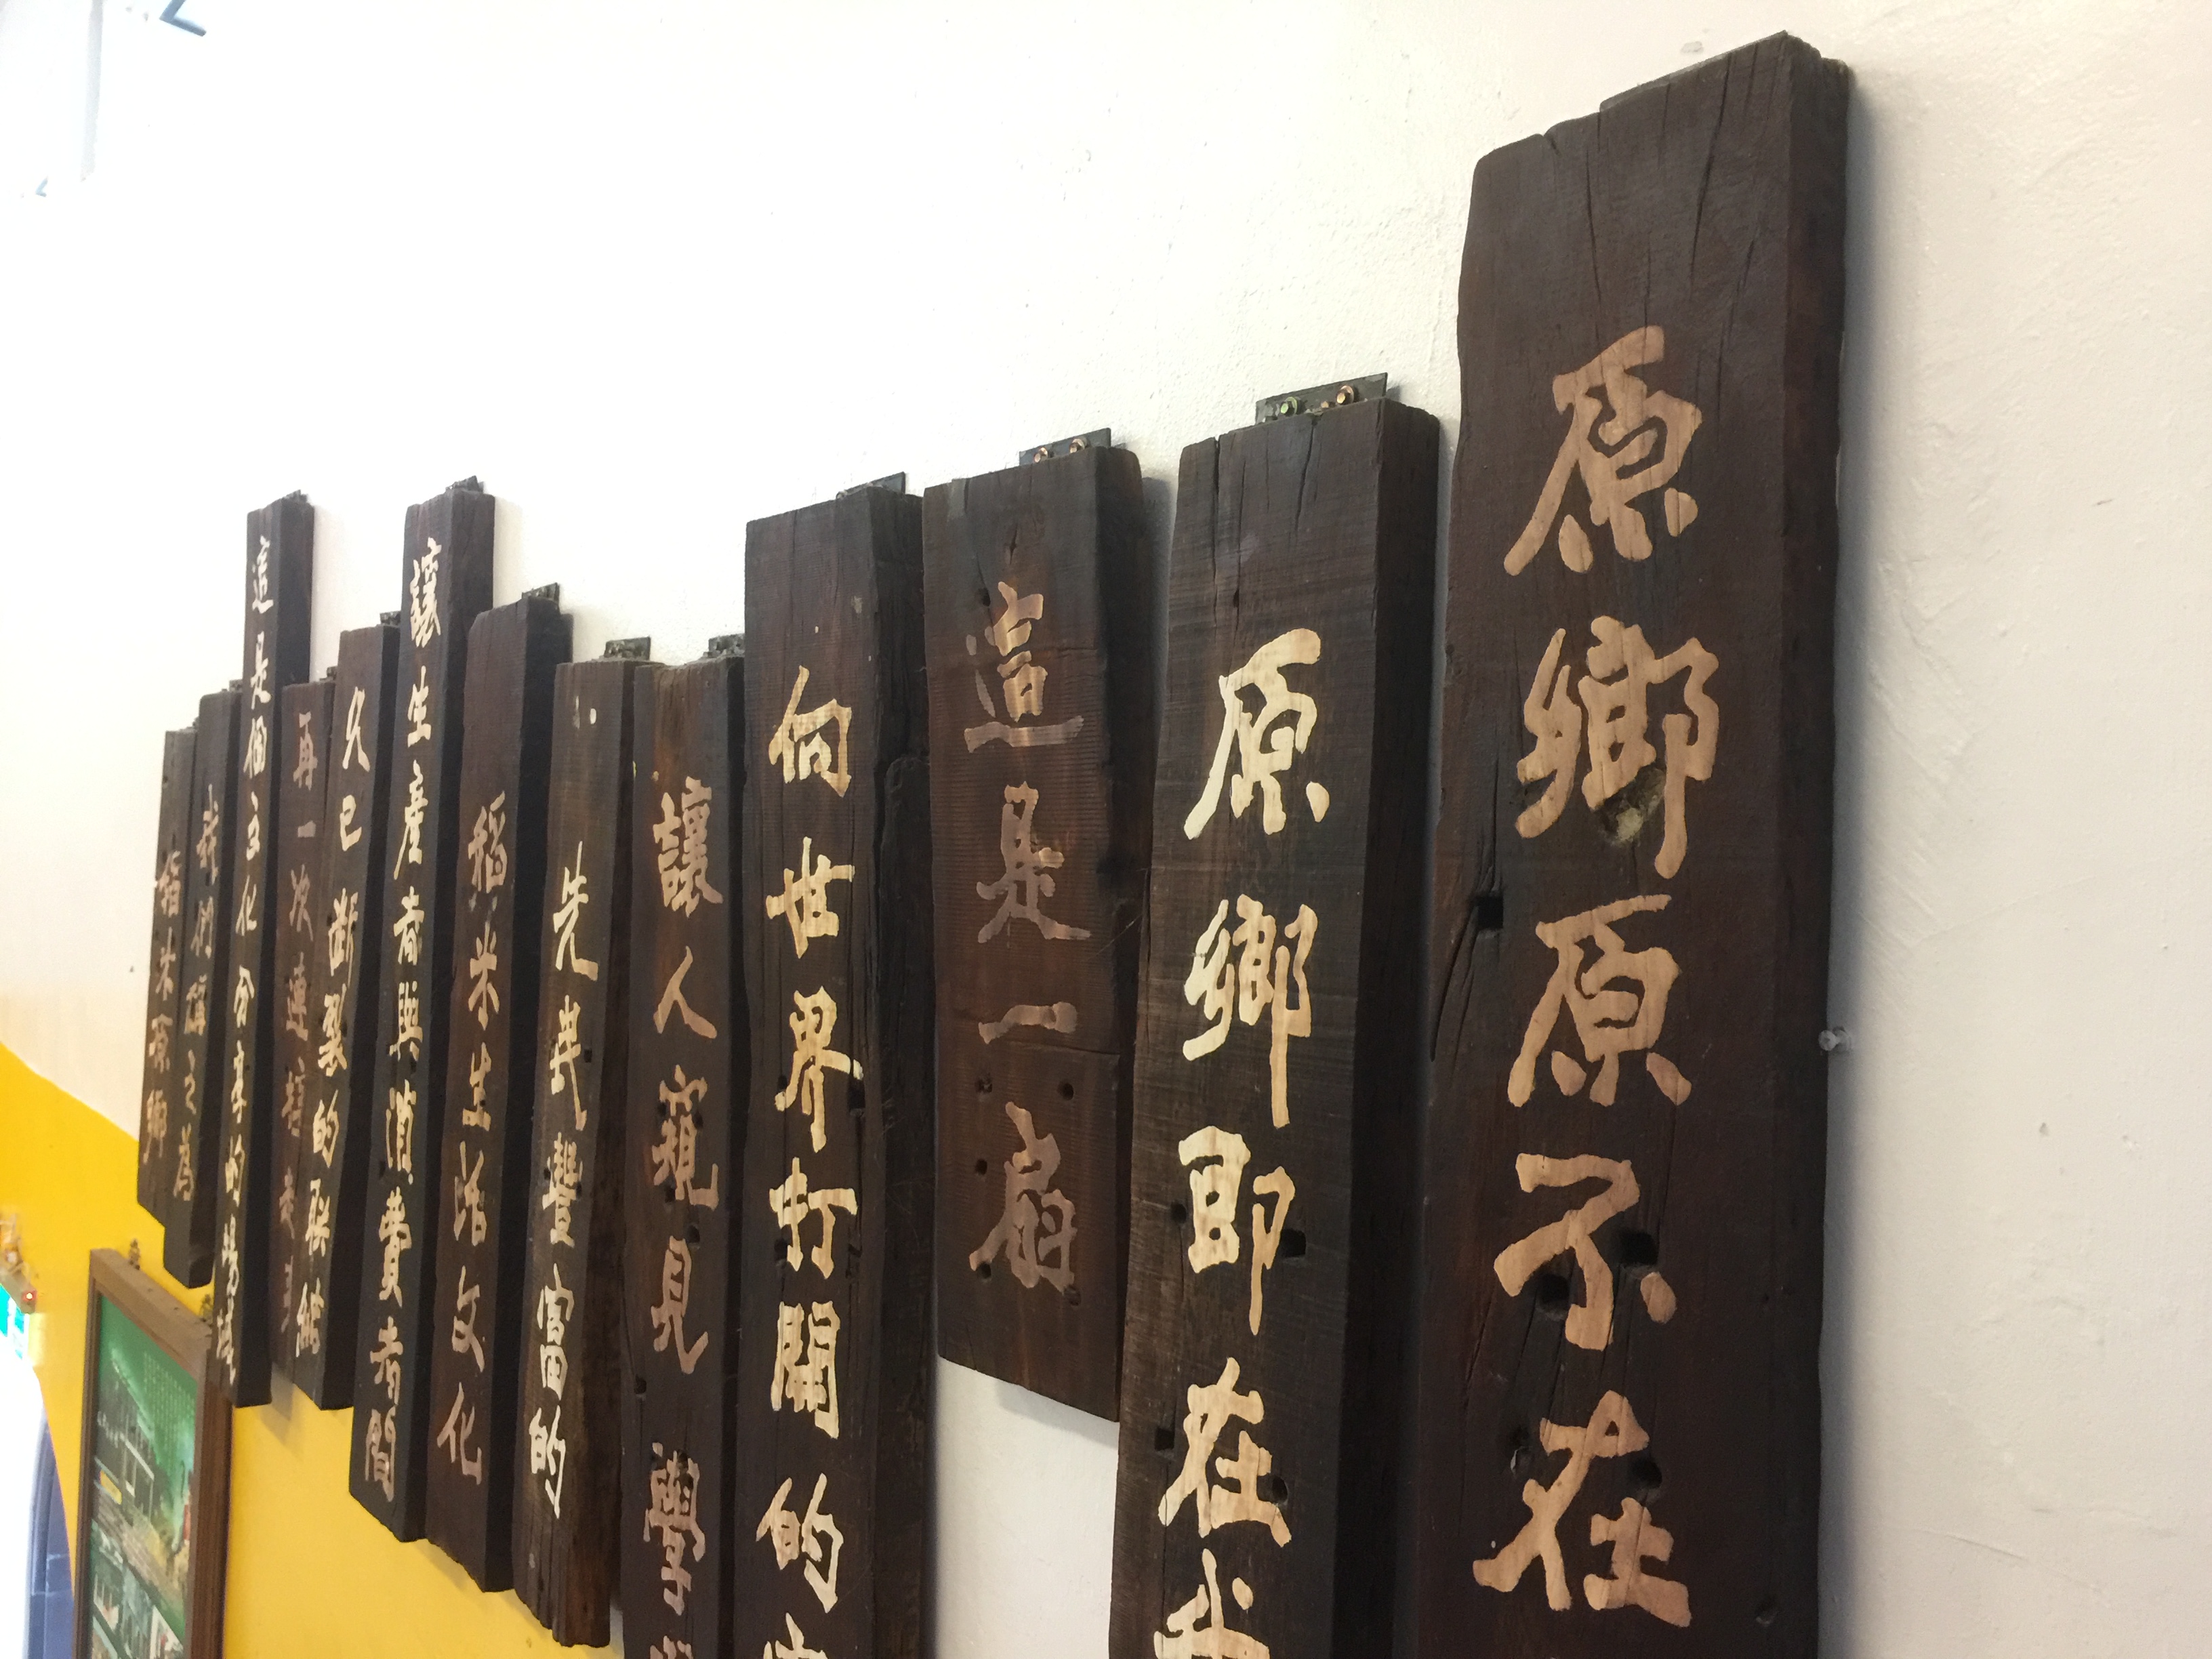 原鄉原不在
原鄉即在
這是一扇
向世界打開的
讓人窺見學
先民豐富的
稻米生活文化
讓生產者與消費者間
久已斷裂的聯結
再一次連
這是個文化分享的場域
我們稱之為
稻米原鄉